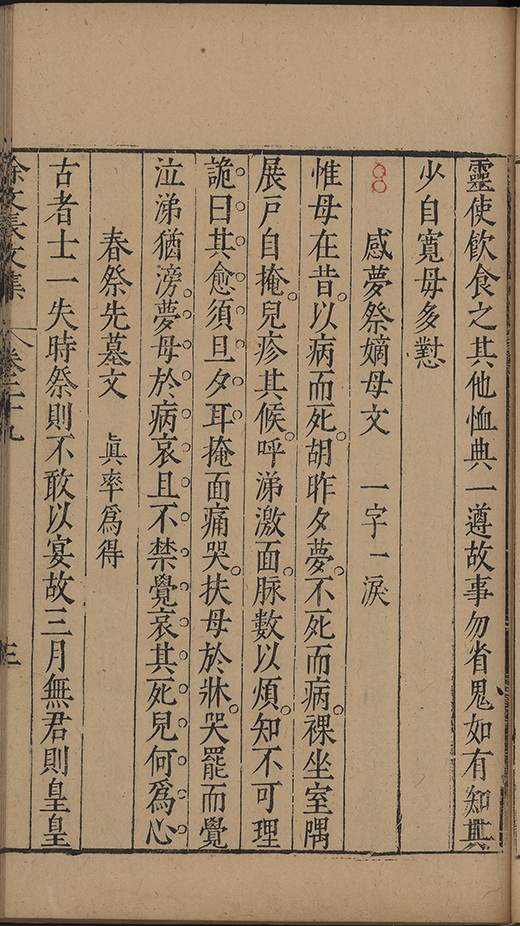 靈使飲食之其他恤典一遵故事勿省鬼如有知其
少自寬毋多懟
感夢祭嫡母文 一字一淚
惟母在昔以病而死胡昨夕夢不死而病裸坐室隅
展戶自掩兒疹其候呼涕激面脉數以煩知不可理
詭曰其愈須旦夕耳掩面痛哭扶母於牀哭罷而覺
泣涕猶滂夢母於病哀且不禁覺哀其死兒何爲心
春祭先墓文 眞率爲得
古者士一失時祭則不敢以宴故三月無君則皇皇
徐文長文集 卷二十九 三